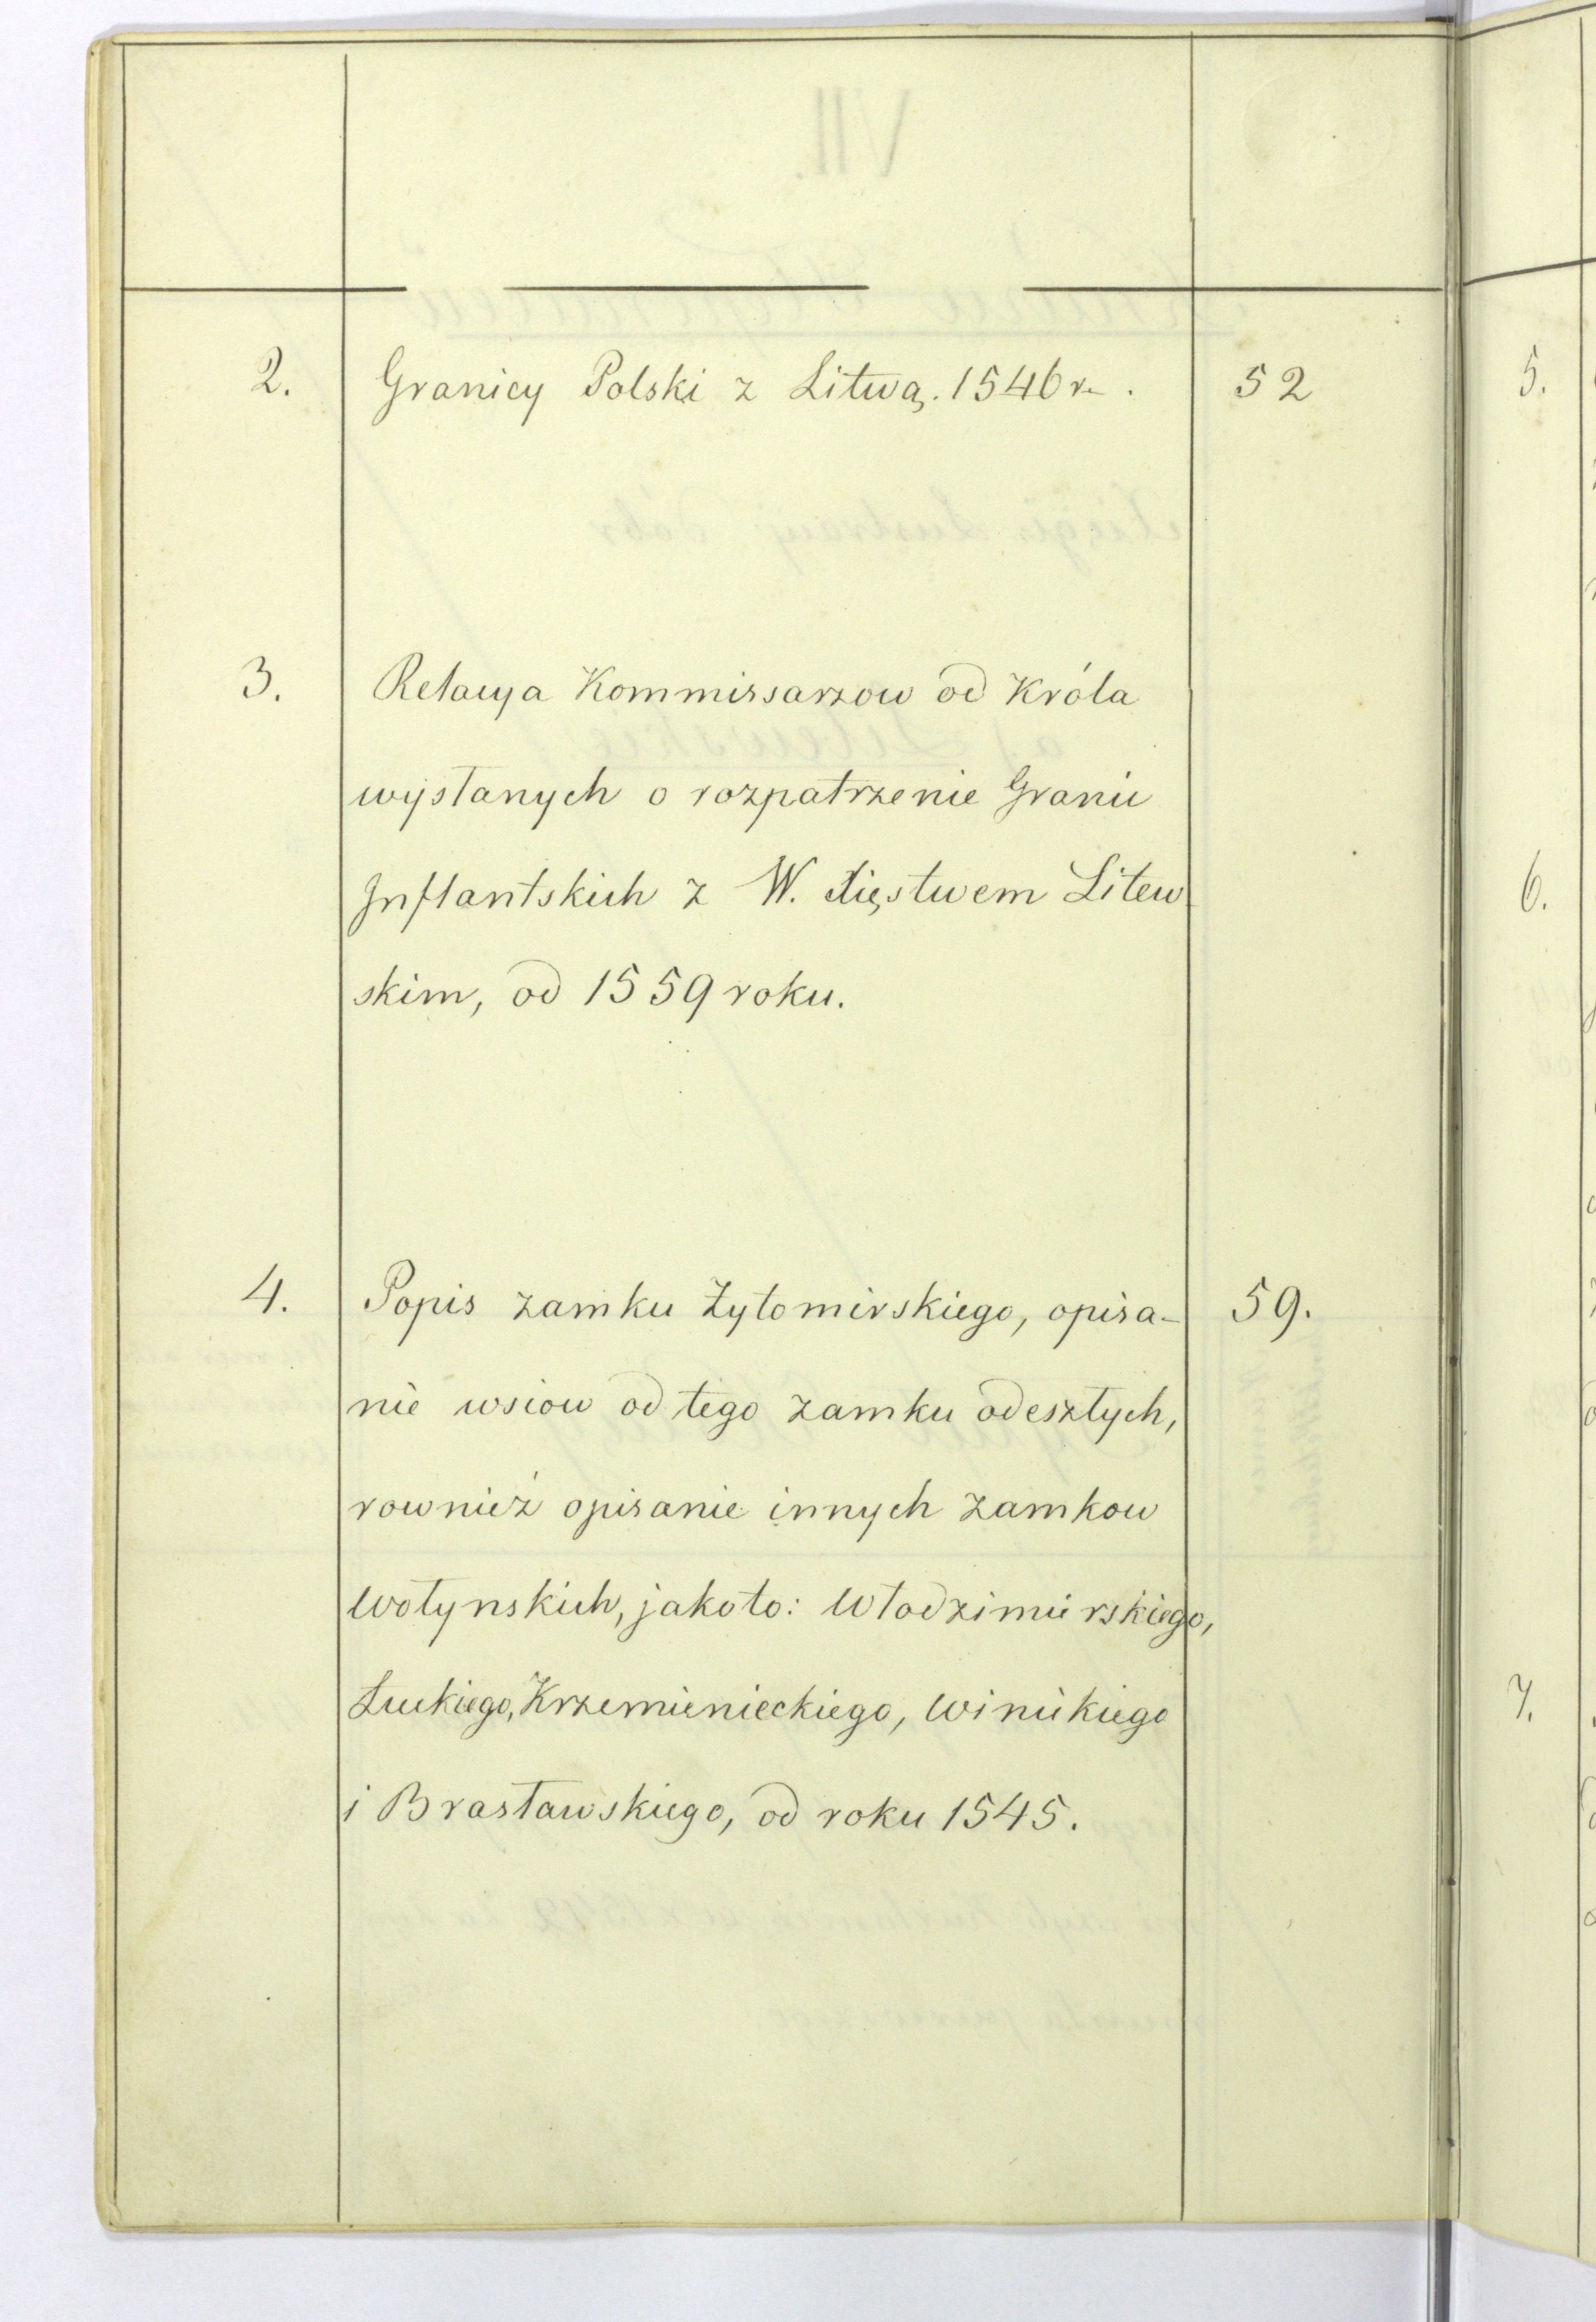 2. Granicy Polski z Litwą. 1546 r. 52
3. Relacya Kommissarzow od Króla
wysłanych o rozpatrzenie Granic
Inflantskich z W. Xięstwem Litew
skim, od 1559 roku.
4. Popis zamku Żytomirskiego, opisa- 59.
nie wsiow od tego zamku odeszłych,
rownież opisanie innych zamkow
Wołynskich, jakoto: Włodzimirskiego,
Łuckiego, Krzemienieckiego, Winickiego
i Brasławskiego, od roku 1545.
5.
6.
7.